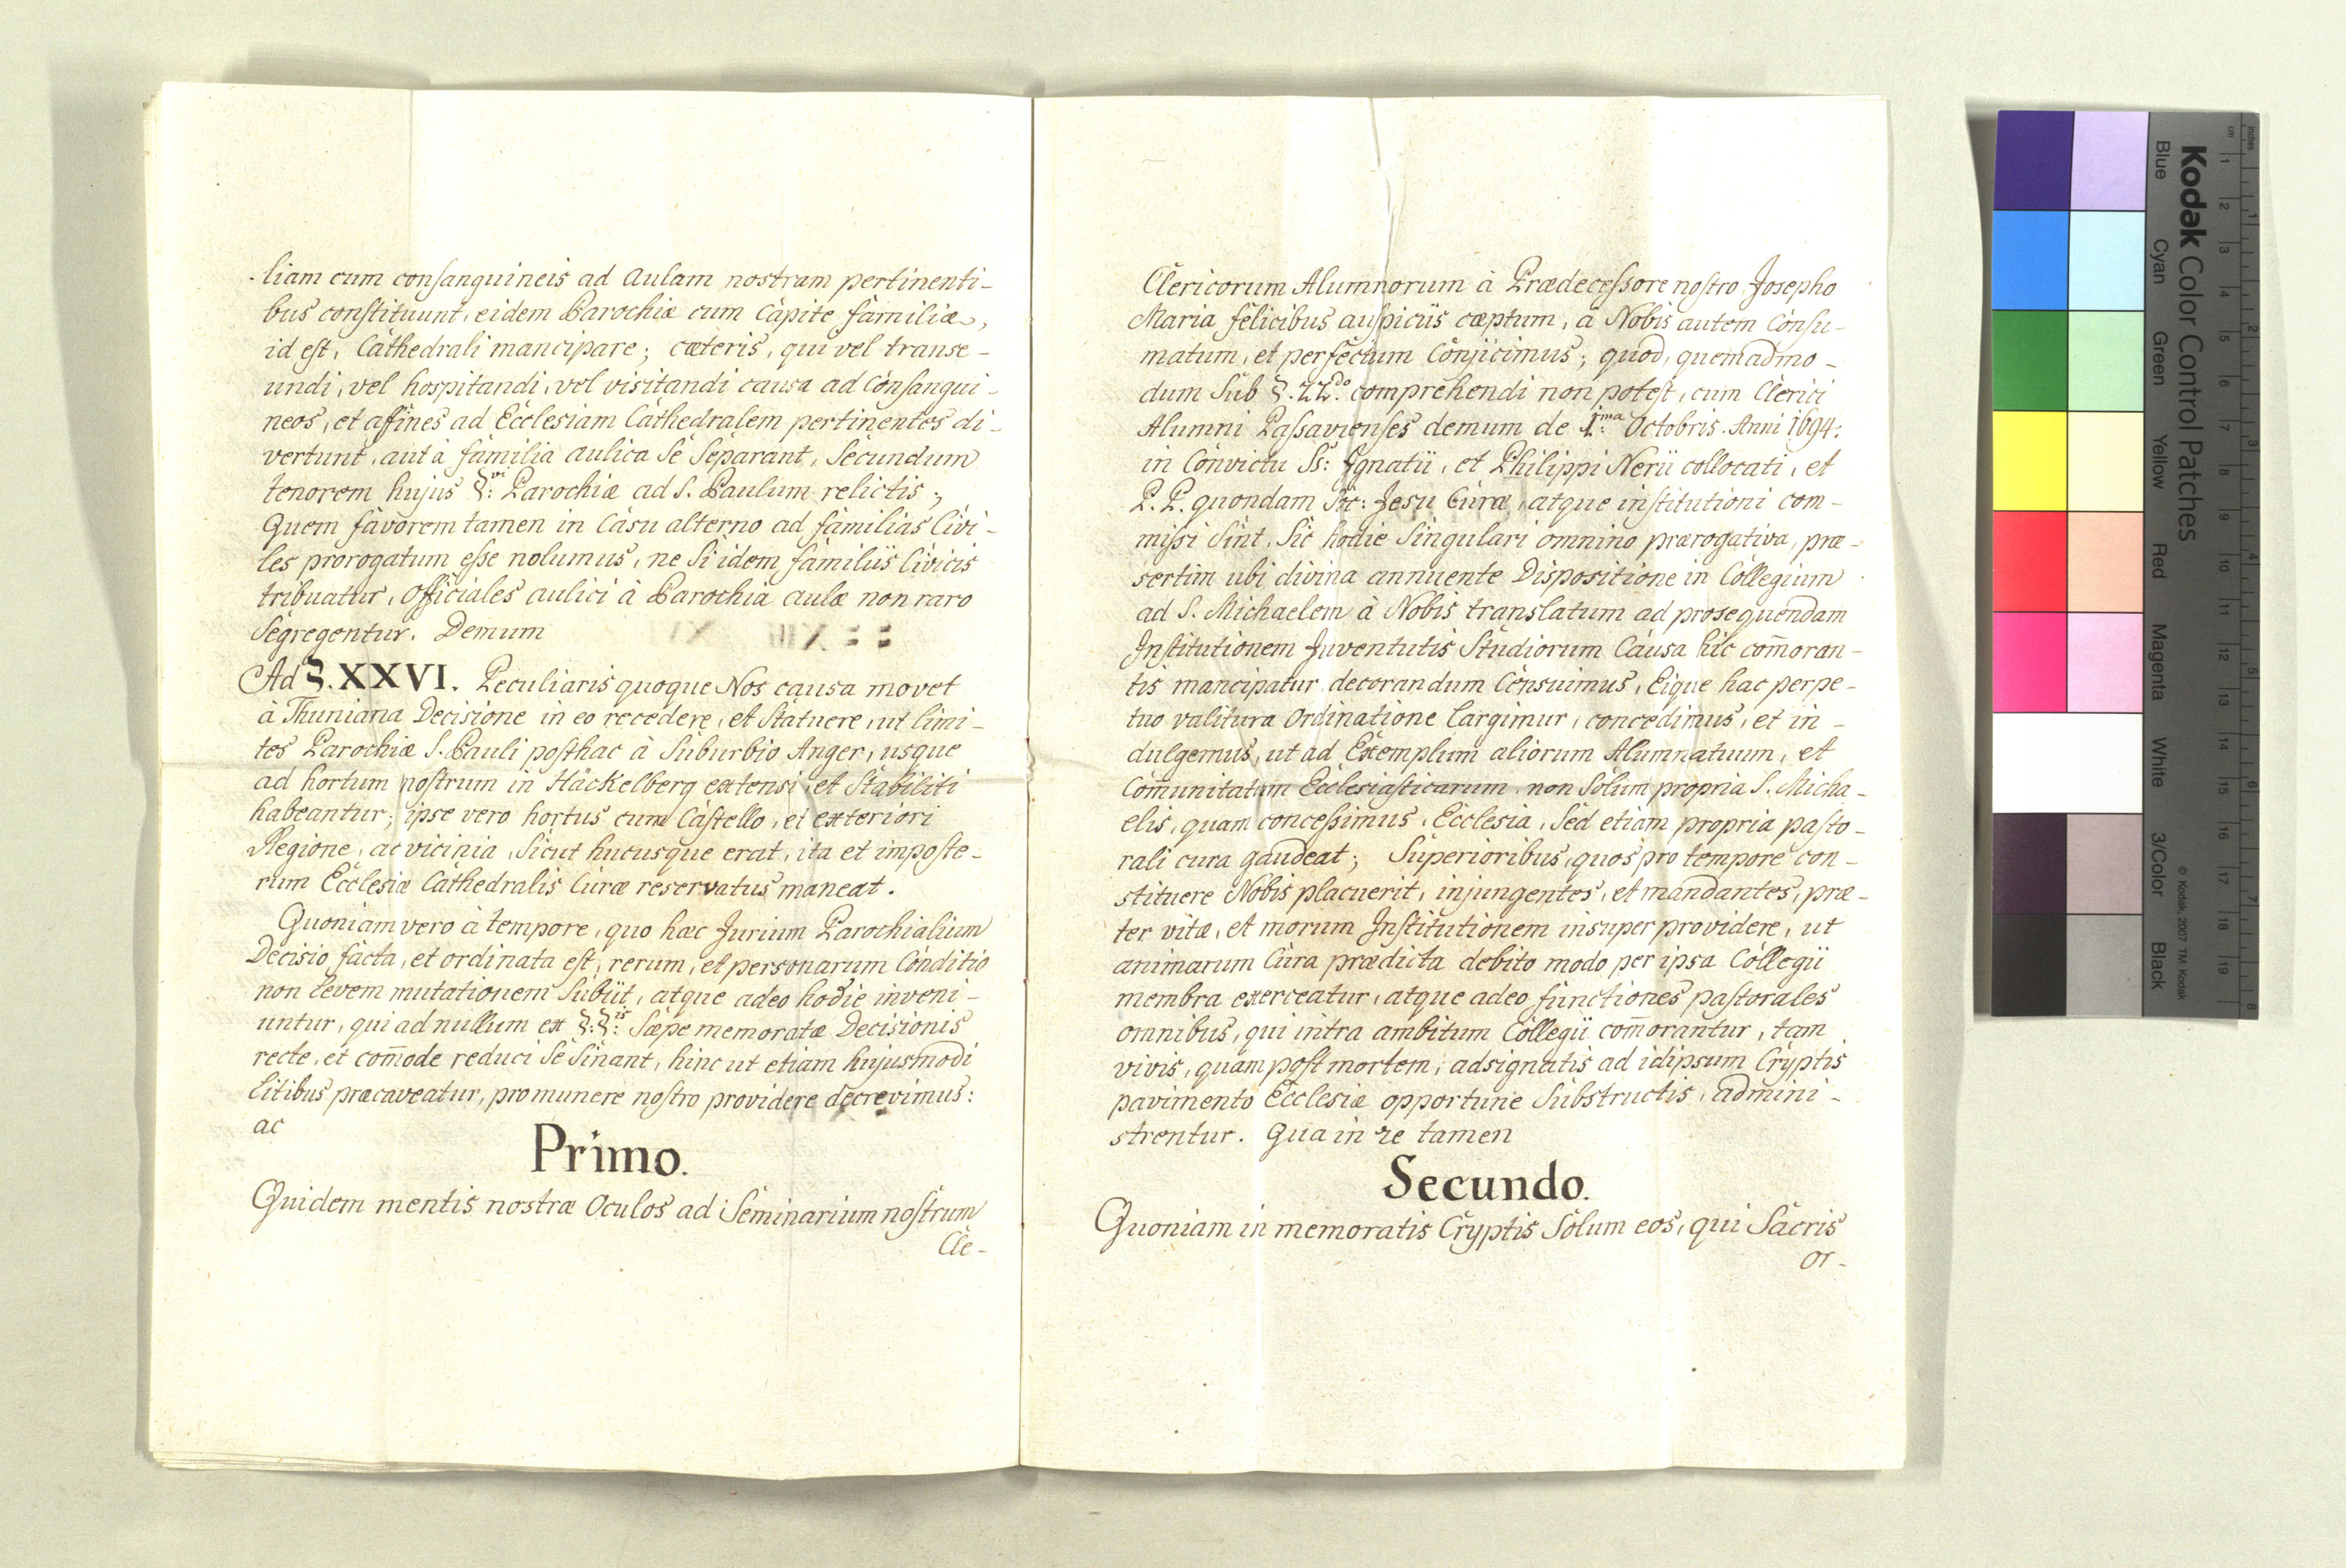 liam cum consanguineis ad Aulam nostram pertinenti-
bus constituunt, eidem Parochiæ cum Capite familiæ,
id est, Cathedrali mancipare; cæteris, qui vel transe-
undi, vel hospitandi, vel visitandi causa ad Consangui-
neos, et affines ad Ecclesiam Cathedralem pertinentes di-
vertunt, aut à familia aulica se separant, secundum
tenorem hujus §:vi Parochiæ ad S. Paulum relictis;
Quem favorem tamen in Casu alterno ad familias Civi-
les prorogatum esse nolumus, ne si idem familiis Civicis
tribuatur, Officiales aulici à Parochia aulæ non raro
segregentur. Demum
Ad §. XXVI. Peculiaris quoque Nos causa movet
à Thuniana Decisione in eo recedere, et statuere, ut limi-
tes Parochiæ S. Pauli posthac à Suburbio Anger, usque
ad hortum nostrum in Häckelberg extensi, et stabiliti
habeantur; ipse vero hortus cum Castello, et exteriori
Regione, ac vicinia, sicut hucusque erat, ita et imposte-
rum Ecclesiæ Cathedralis Curæ reservatus maneat.
Quoniam vero à tempore, quo hæc Jurium Parochialium
Decisio facta, et ordinata est, rerum, et personarum Conditio
non levem mutationem subiit, atque adeo hodie inveni-
untur, qui ad nullum ex §:§:is sæpe memoratæ Decisionis
recte, et com̄ode reduci se sinant, hinc ut etiam hujusmodi
Litibus præcaveatur, pro munere nostro providere decrevimus:
ac
Primo.
Quidem mentis nostræ Oculos ad Seminarium nostrum
Cle-
Clericorum Alumnorum à Prædecessore nostro Josepho
Maria felicibus auspiciis cæptum, à Nobis autem Consu-
matum, et perfectum Conjicimus; quod, quemadmo-
dum sub §. 22do. comprehendi non potest, cum Clerici
Alumni Passavienses demum de 1:ma Octobris. Anni 1694:
in Convictu Ss: Ignatii, et Philippi Nerii collocati, et
P.P. quondam Soc: Jesu Curæ, atque institutioni com-
missi sint, Sic hodie singulari omnino prærogativa, præ-
sertim ubi divina annuente Dispositione in Collegium
ad S. Michaelem à Nobis translatum ad prosequendam
Institutionem Juventutis Studiorum Causa hic com̄oran-
tis mancipatur, decorandum Censuimus, Eique hac perpe-
tuo valitura Ordinatione largimur, concedimus, et in-
dulgemus, ut ad Exemplum aliorum Alumnatuum, et
Com̄unitatum Ecclesiasticarum, non solum propria S. Micha-
elis, quam concessimus, Ecclesia, sed etiam propria pasto-
rali cura gaudeat; Superioribus, quos pro tempore con-
stituere Nobis placuerit, injungentes, et mandantes, præ-
ter vitæ, et morum Institutionem insuper providere, ut
animarum Cura prædicta debito modo per ipsa Collegii
membra exerceatur, atque adeo functiones pastorales
omnibus, qui intra ambitum Collegii com̄orantur, tam
vivis, quam post mortem, adsignatis ad idipsum Cryptis
pavimento Ecclesiæ opportune substructis, admini-
strentur. Qua in re tamen
Secundo.
Quoniam in memoratis Cryptis solum eos, qui Sacris
or-
Kodak Color Control Patches
© Kodak, 2007 TM: Kodak
Blue Cyan Green Yellow Red Magenta White 3/Color Black
cm 1 2 3 4 5 6 7 8 9 10 11 12 13 14 15 16 17 18 19
inches 1 2 3 4 5 6 7 8